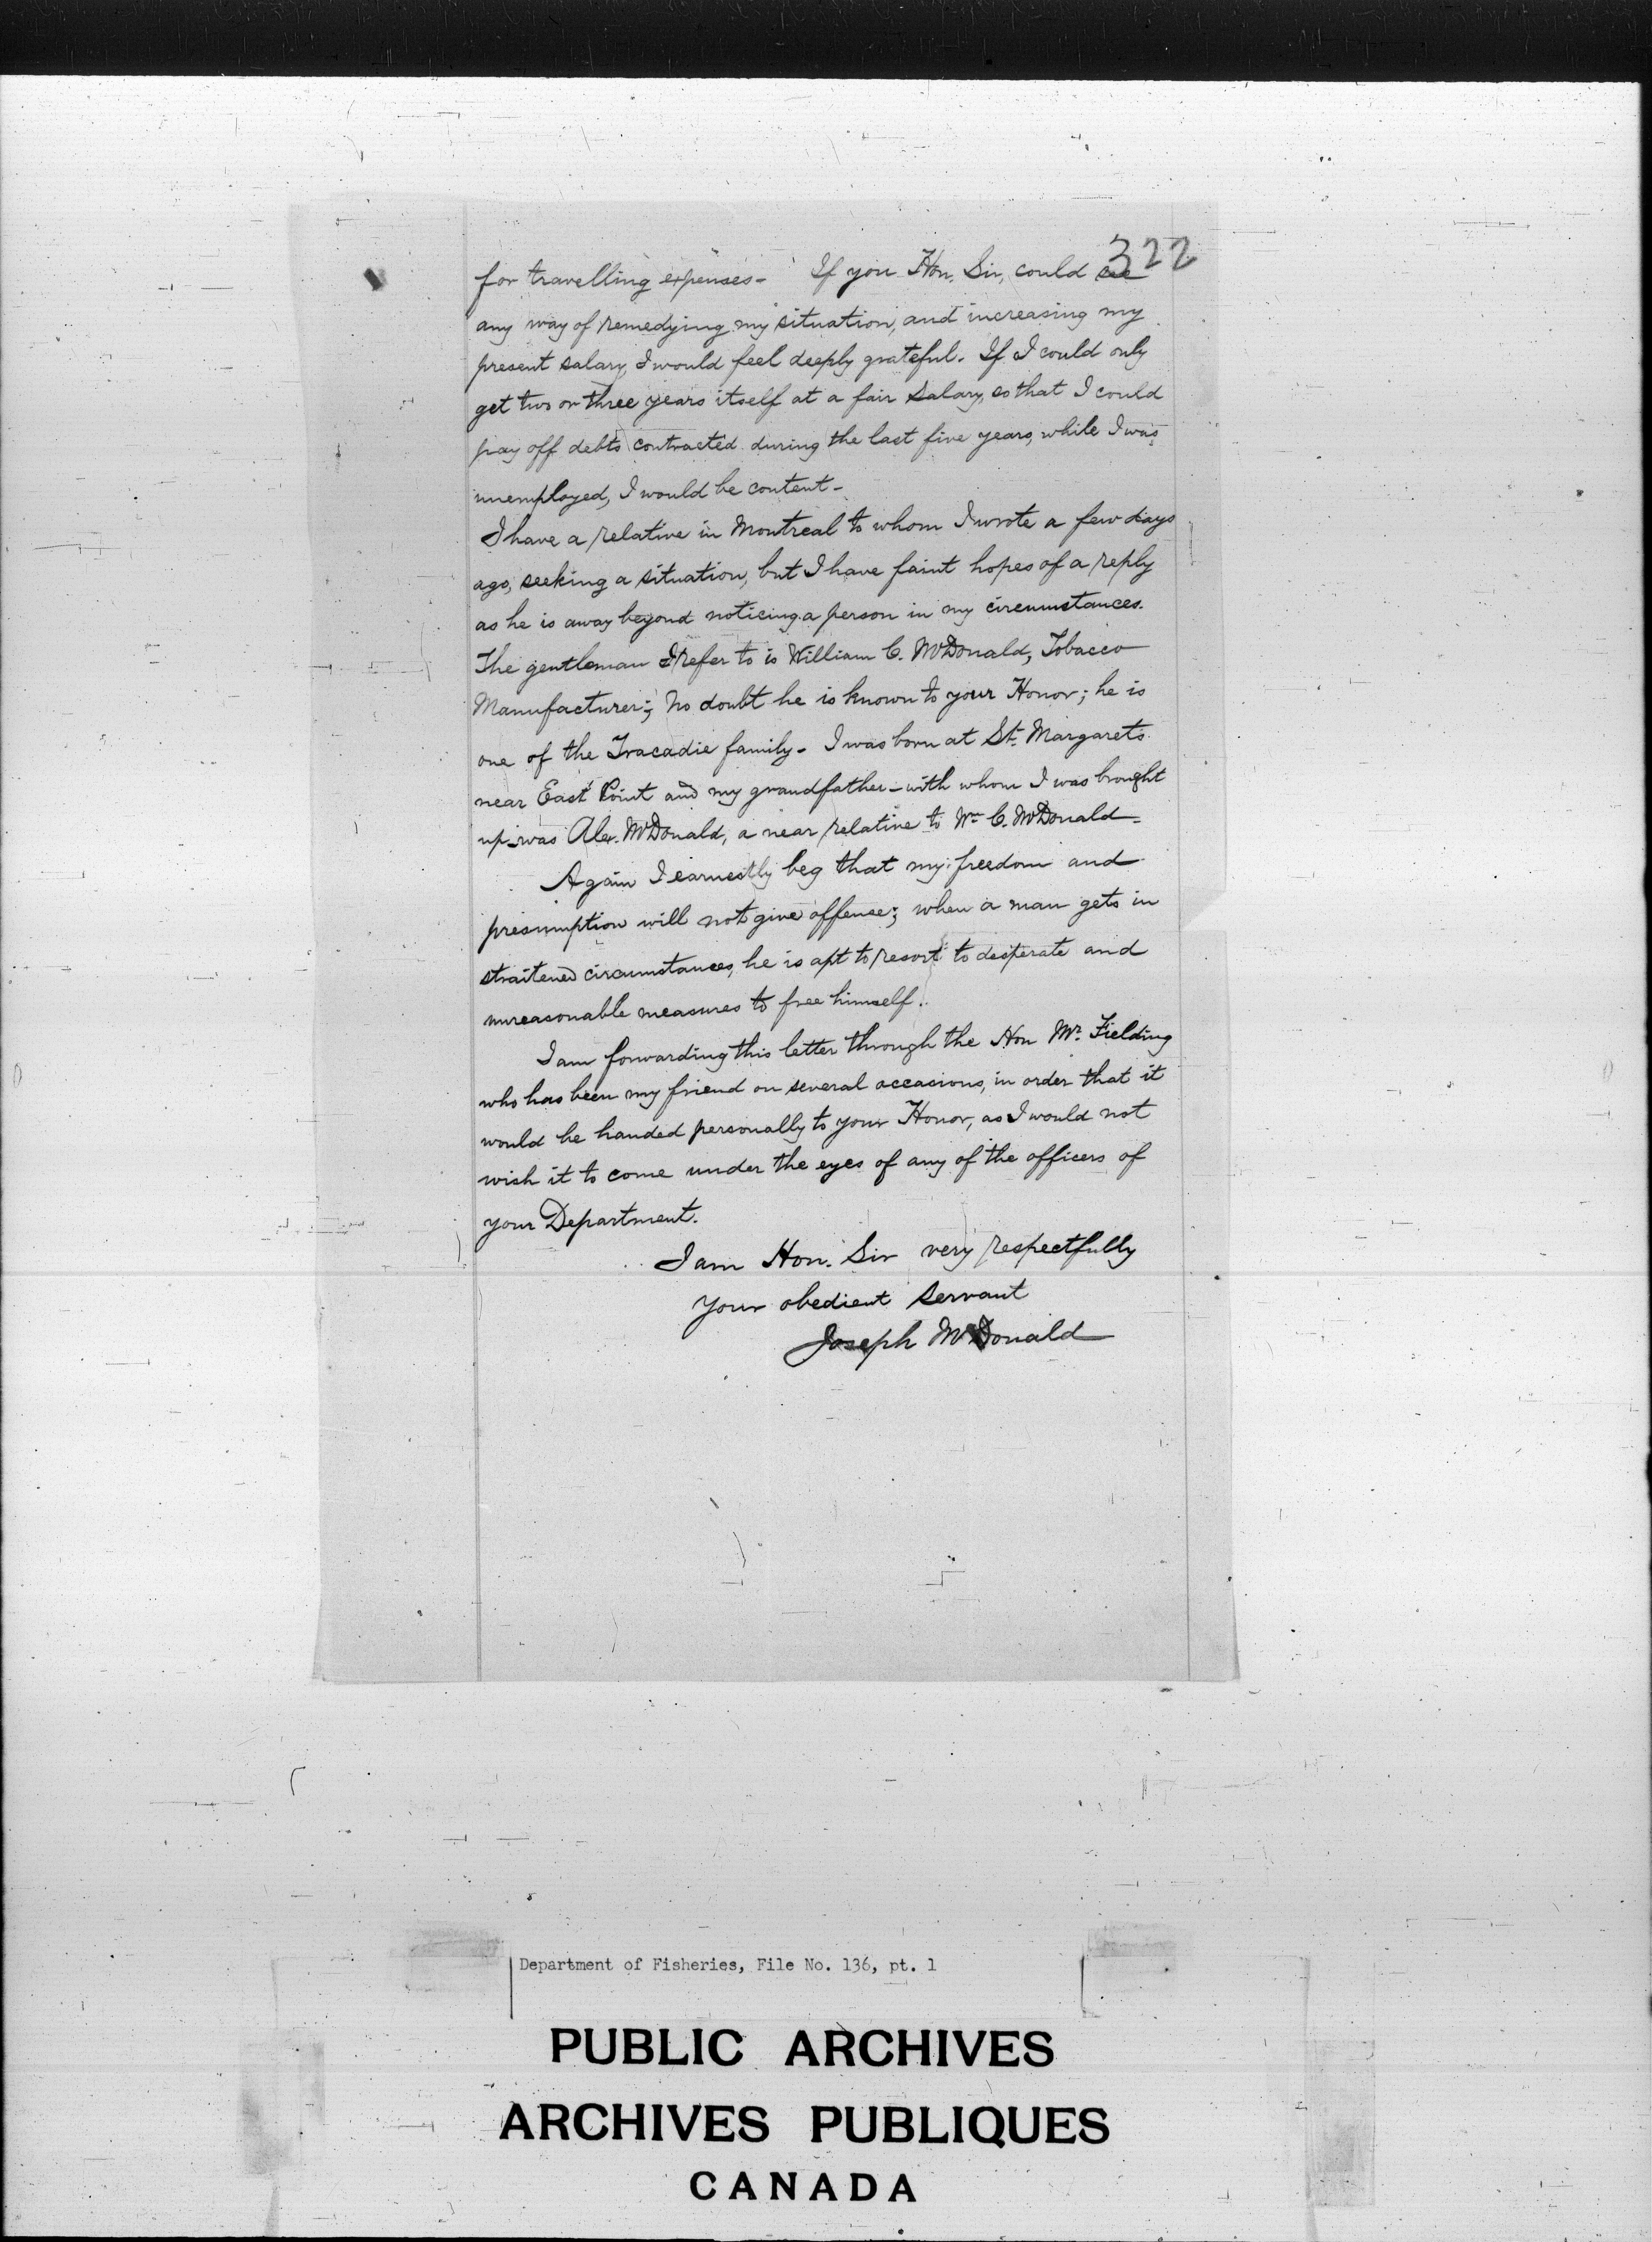 322
for travelling expenses - If you Hon. Sir, could see
any way of remedying my situation, and increasing my
present salary, I would feel deeply grateful. If I could only
get two or three years itself at a fair salary, so that I could
pay off debts contracted during the last five years, while I was
unemployed, I would be content -
I have a relative in Montreal to whom I wrote a few days
ago, seeking a situation, but I have faint hopes of a reply
as he is away beyond noticing a person in my circumstances.
The gentleman I refer to is William C. McDonald, Tobacco
Manufacturer; No doubt he is known to your Honor; he is
one of the Tracadie family - I was born at St. Margarets
near East Point and my grandfather - with whom I was brought
up - was Alex. McDonald, a near relative to Wm C. McDonald -
Again I earnestly beg that my freedom and
presumption will not give offense; when a man gets in
straitened circumstances, he is apt to resort to desperate and
unreasonable measures to free himself.
I am forwarding this letter through the Hon Mr. Fielding
who has been my friend on several occasions, in order that it
would be handed personally to your Honor, as I would not
wish it to come under the eyes of any of the officers of
your Department.
I am Hon. Sir very respectfully
Your obedient servant
Joseph McDonald
Department of Fisheries, File No. 136, pt. 1
PUBLIC ARCHIVES
ARCHIVES PUBLIQUES
CANADA